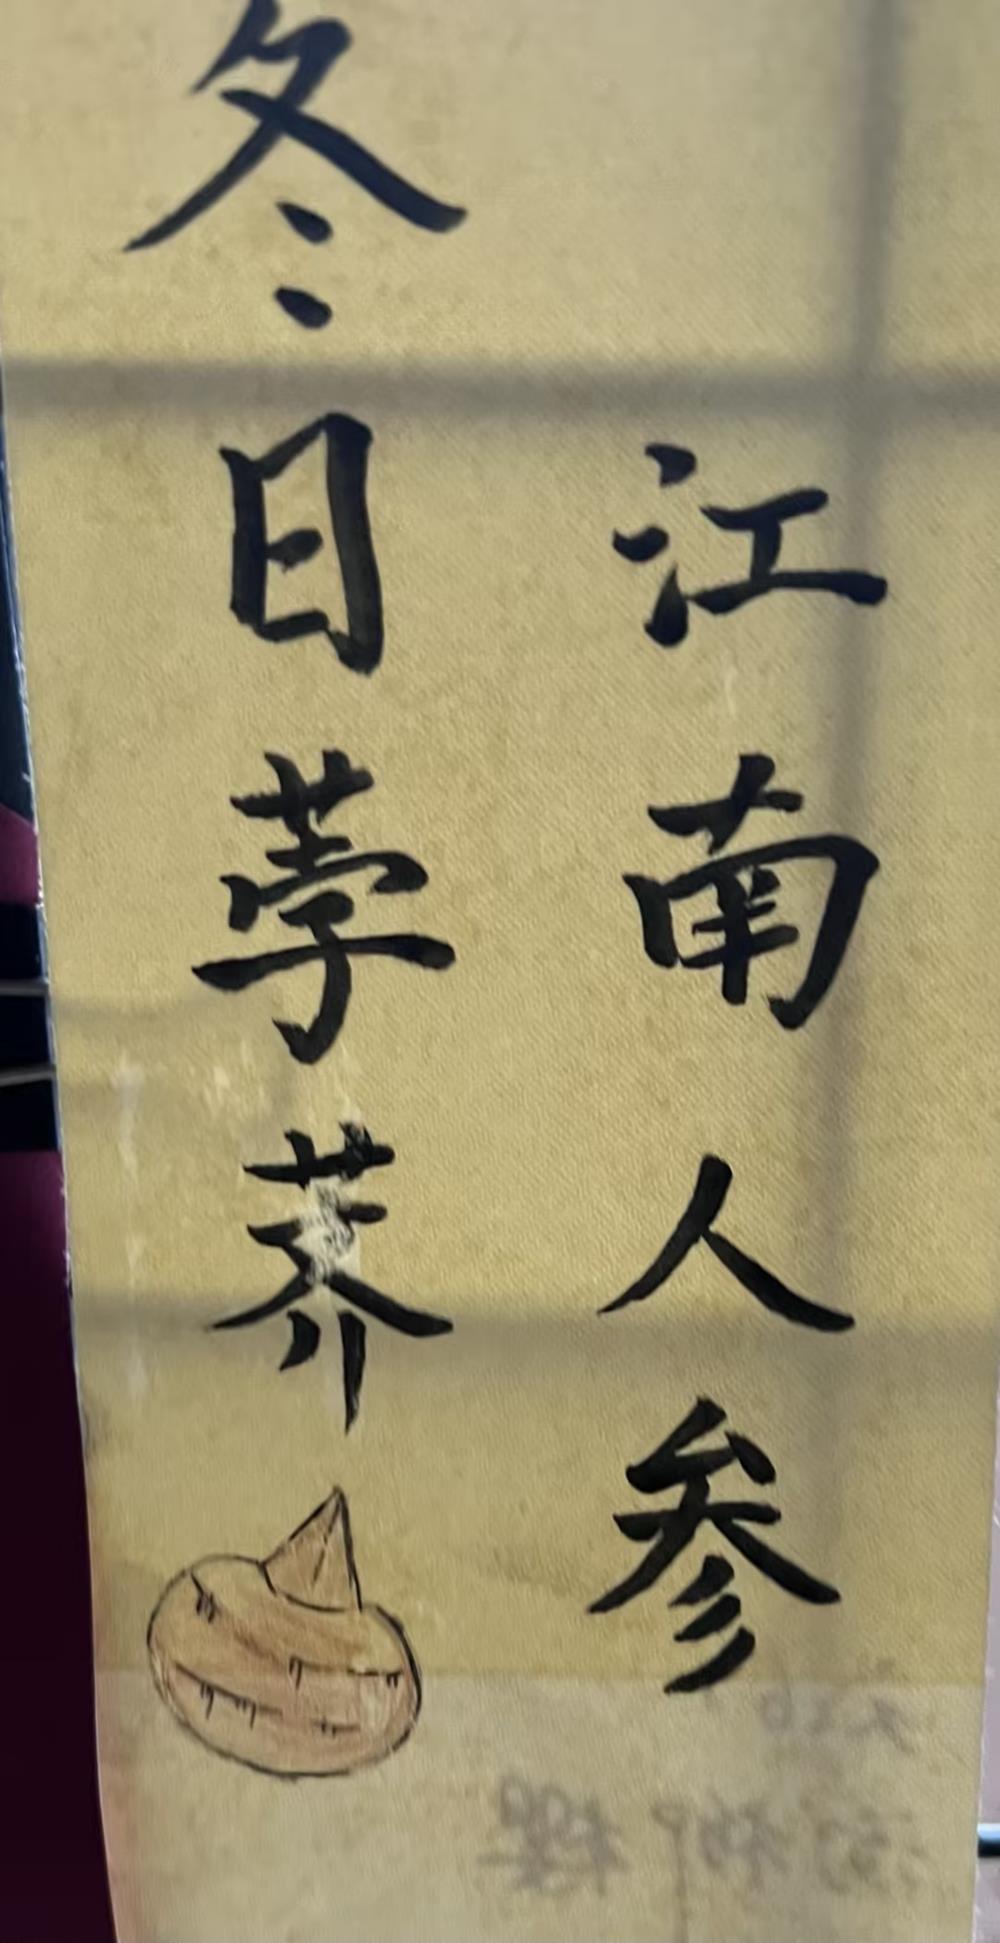 冬日荸荠
江南人参